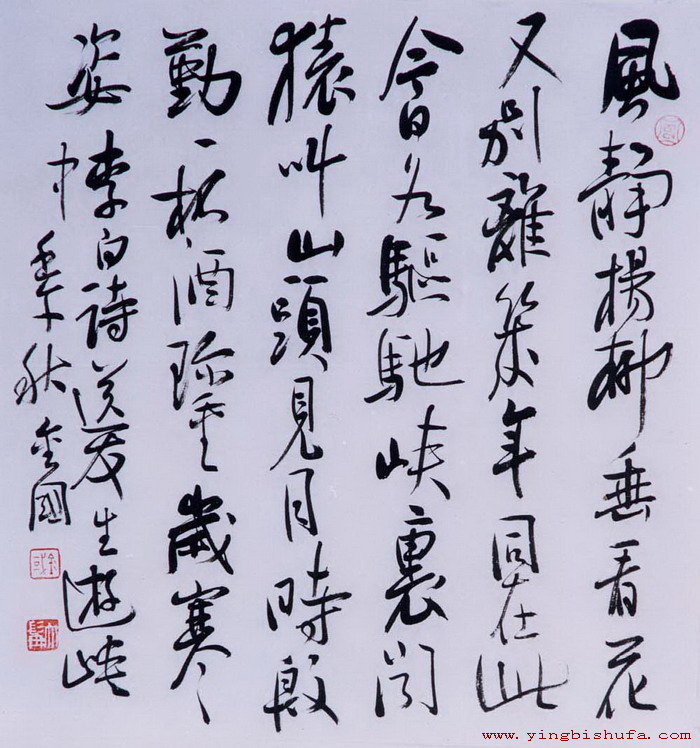 風靜楊柳垂看花
又別離幾年同在此
今日各驅馳峽裏聞
猿叫山頭見月時殷
勤一杯酒珍重歲寒
姿 李白詩送友生遊峽
中 秋金國
www.yingbishufa.com